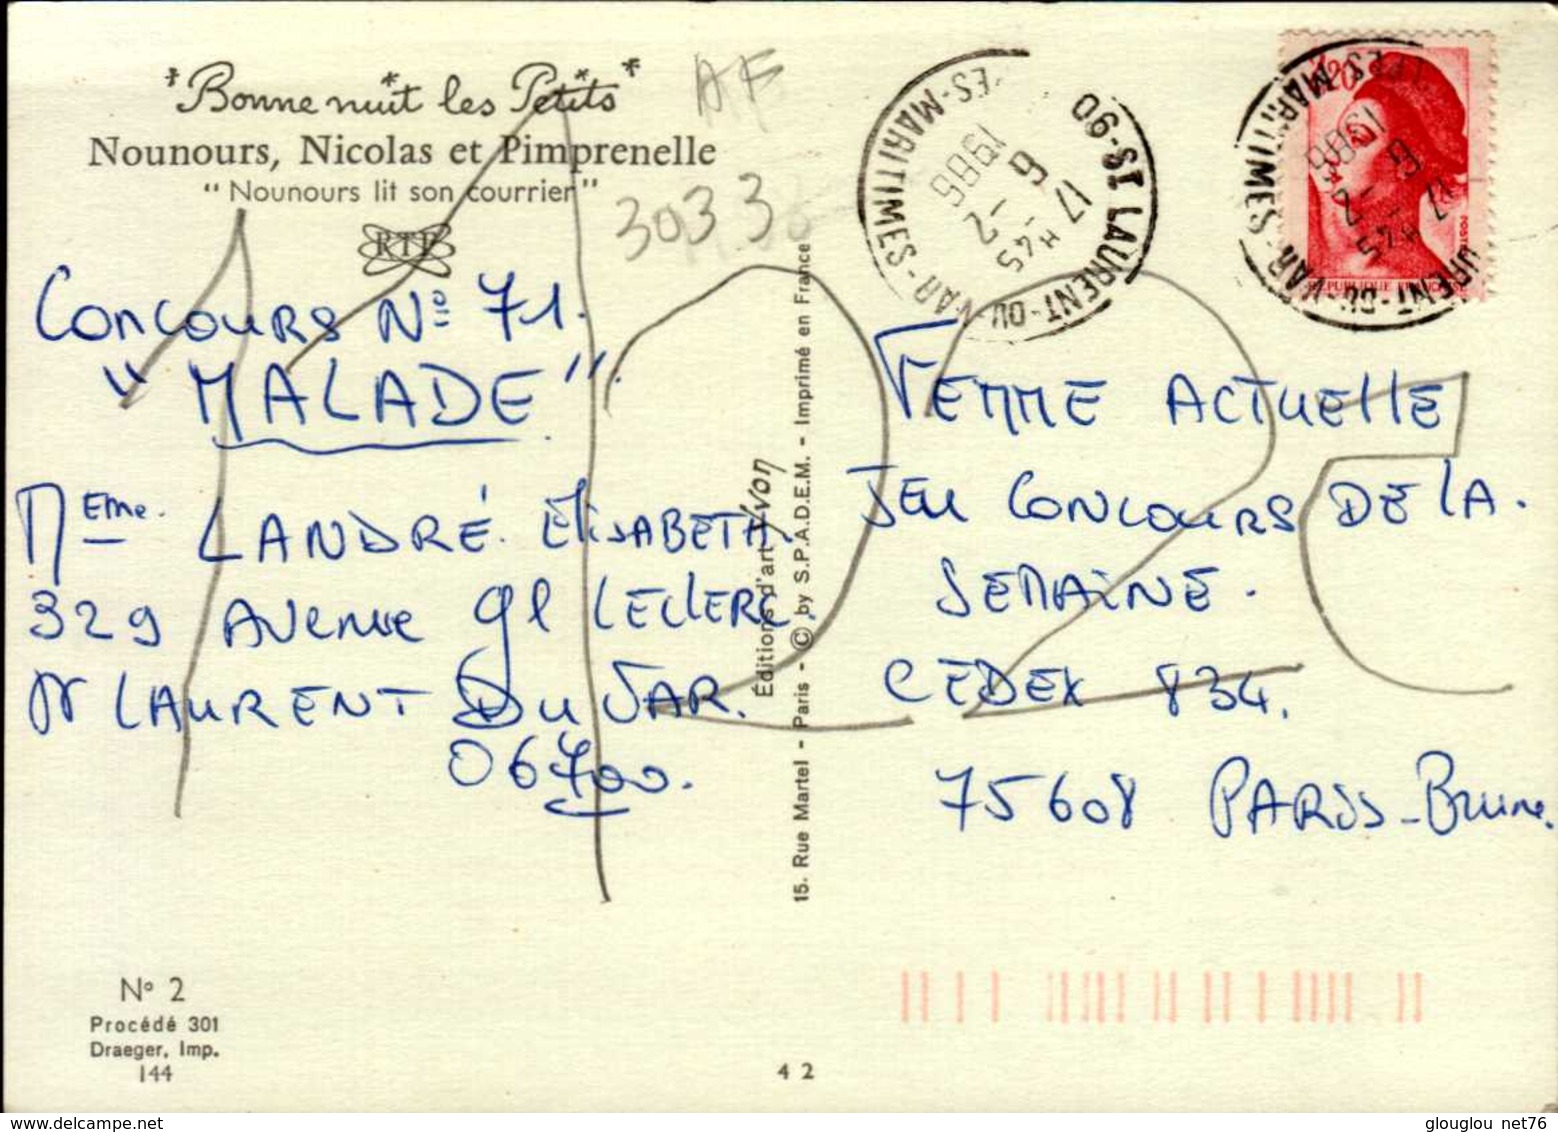 *Bonne nuit les Petits*
Nounours, Nicolas et Pimprenelle
"Nounours lit son courrier"
RTF
AF
3033
CONCOURS No 71.
"MALADE".
Meme. LANDRÉ. ELISABETH.
329 AVENUE Gl LECLERC.
St LAURENT DU VAR.
06700.
FEMME ACTUELLE
JEU CONCOURS DE LA.
SEMAINE.
CEDEX 834.
75608 PARIS-Brune.
11225
15. Rue Martel - Paris - © by S.P.A.D.E.M. - Imprimé en France
Éditions d'art Yvon
06-ST LAURENT-DU-VAR-S
ES-MARITIMES
17 H45
6 -2
1986
2,20
REPUBLIQUE FRANÇAISE
POSTES
No 2
Procédé 301
Draeger, Imp.
144
42
glouglou net76